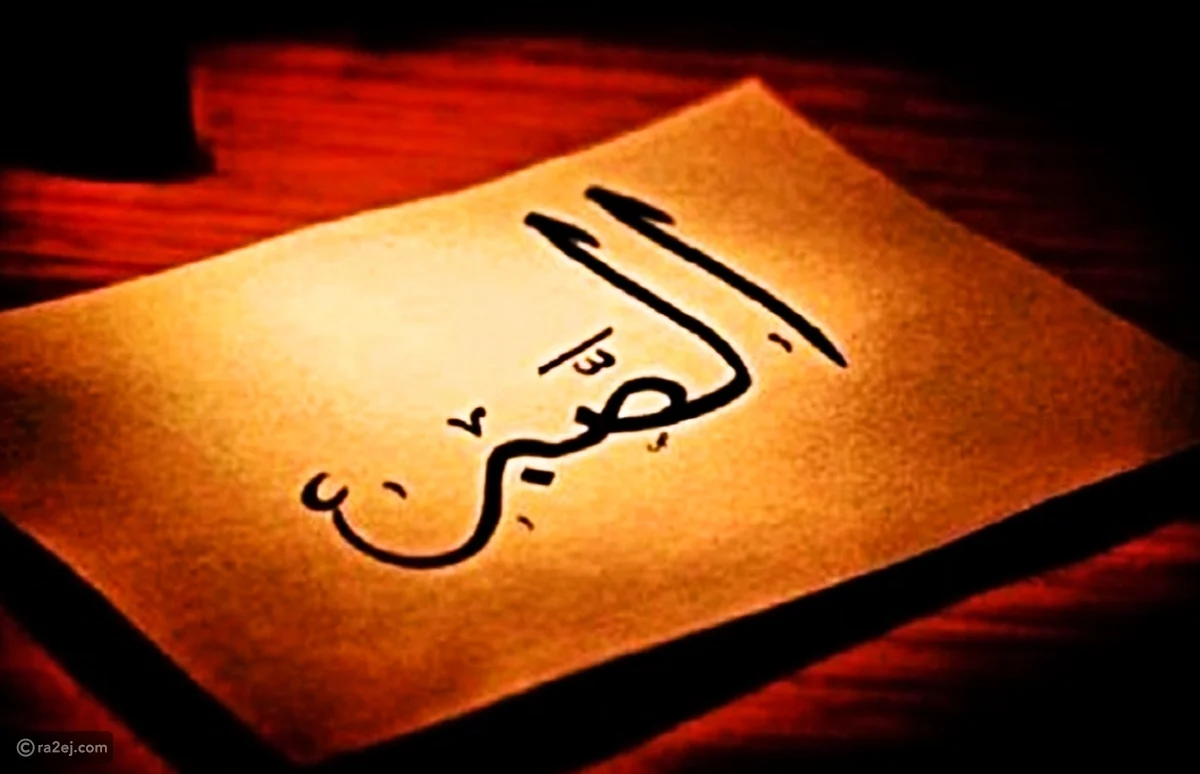 الصَّبر
© ra2ej.com